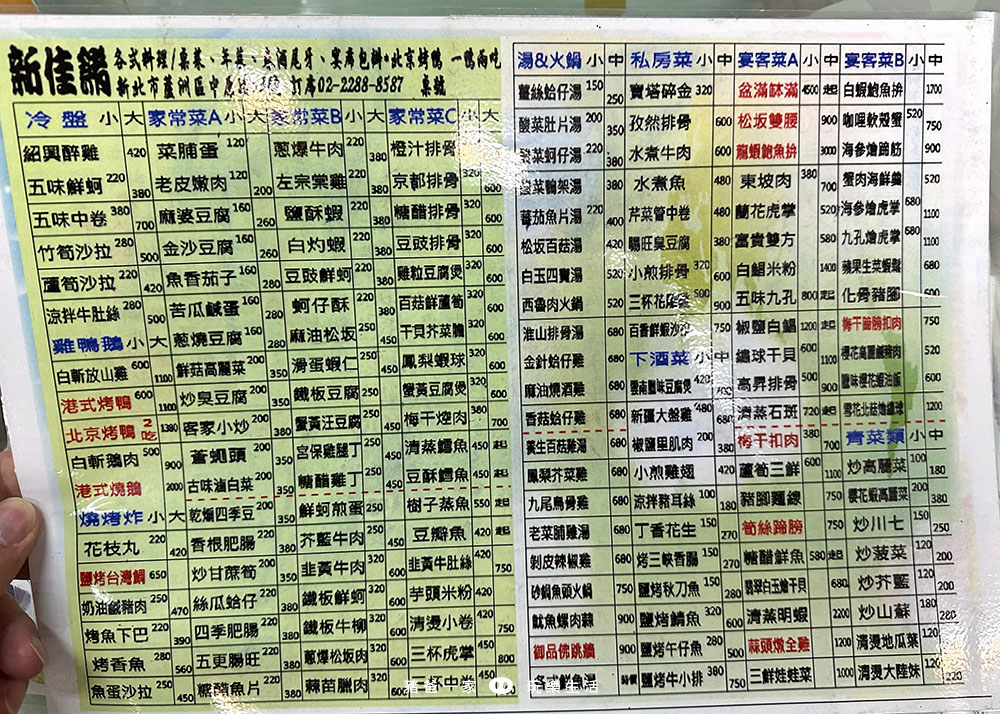 新佳餚 各式料理/桌菜、年菜、春酒尾牙、宴席包辦•北京烤鴨 一鴨兩吃
新北市蘆洲區中原 訂席02-2288-8587 桌號
冷盤 小 大
紹興醉雞 420
五味鮮蚵 220 380
五味中卷 380 700
竹筍沙拉 280 500
蘆筍沙拉 220 420
涼拌牛肚絲 280 500
雞鴨鵝 小 大
白斬放山雞 600 1100
港式烤鴨 600 1100
北京烤鴨 2吃 1380
白斬鵝肉 500 900
港式燒鵝 2000
燒烤炸 小 大
花枝丸 220 420
鹽烤台灣鯛 650
奶油鹹豬肉 250 470
烤魚下巴 220 390
烤香魚 280 560
魚蛋沙拉 250 450
家常菜A 小 大
菜脯蛋 120
老皮嫩肉 120 200
麻婆豆腐 160 260
金沙豆腐 160 260
魚香茄子 160 280
苦瓜鹹蛋 160 280
蔥燒豆腐 160 280
鮮菇高麗菜 200 350
炒臭豆腐 200 350
客家小炒 200 380
蒼蠅頭 200 350
古味滷白菜 200 350
乾煸四季豆 200 350
香根肥腸 220 380
炒甘蔗筍 200 350
絲瓜蛤仔 220 380
四季肥腸 220 380
五更腸旺 220 380
糖醋魚片 220 380
家常菜B 小 大
蔥爆牛肉 220 380
左宗棠雞 220 380
鹽酥蝦 220 400
白灼蝦 220 380
豆豉鮮蚵 220 380
蚵仔酥 220 380
麻油松坂 250 450
滑蛋蝦仁 250 450
鐵板豆腐 250 450
蟹黃豆腐 220 380
宮保雞腿丁 250 450
糖醋雞丁 250 450
鮮蚵煎蛋 250 450
芥藍牛肉 250 450
韭黃牛肉 320 600
鐵板鮮蚵 320 600
鐵板牛柳 320 600
蔥爆松坂肉 320 600
蒜苗臘肉 320 600
家常菜C 小 大
橙汁排骨
京都排骨 320 600
糖醋排骨 320 600
豆豉排骨 320 600
雞粒豆腐煲 320 600
百菇鮮蘆筍 320 600
干貝芥菜膽 320 600
鳳梨蝦球 320 600
蟹黃豆腐煲 320 600
梅干燒肉 380 700
清蒸鱈魚 450 起
豆酥鱈魚 450 起
樹子蒸魚 550 起
豆瓣魚 420 起
韭黃牛肚絲 420 750
芋頭米粉 420
清燙小卷 420 750
三杯虎掌 450 800
三杯中卷 450
湯&火鍋 小 中
薑絲蛤仔湯 150 250
酸菜肚片湯 200 350
酸菜蚵仔湯 220 380
酸菜鴨架湯 380
蕃茄魚片湯 220 400
松坂百菇湯 420
白玉四寶湯 520
西魯肉火鍋 520
淮山排骨湯 680
金針蛤仔雞 680
麻油燒酒雞 680
香菇蛤仔雞 680
養生百菇雞湯 680
鳳梨芥菜雞 680
九尾烏骨雞 680
老菜脯雞湯 680
剝皮辣椒雞 680
砂鍋魚頭火鍋 750
魷魚螺肉蒜 900
御品佛跳牆 900
各式鮮魚湯 時價
私房菜 小 中
寶塔碎金 320
孜然排骨 600
水煮牛肉 600
水煮魚 480
芹菜管中卷 480
腸旺臭豆腐 380
小煎排骨 320 600
三杯花 500 900
百香鮮蝦沙沙 750
下酒菜 小 中
雲南酸味豆腐煲 420 700
新疆大盤雞 480 680
椒鹽里肌肉 200 380
小煎雞翅 420
涼拌豬耳絲 100 180
丁香花生 150 270
烤三峽香腸 150 270
鹽烤秋刀魚 150 280
鹽烤鯖魚 320 600
鹽烤午仔魚 280 500
鹽烤牛小排 380 750
宴客菜A 小 中
盆滿缽滿 4500 起
松坂雙腰 900
龍蝦鮑魚拼 3000
東坡肉 380 700
蘭花虎掌 520
富貴雙方 580
白鯧米粉 1400
五味九孔 800 起
椒鹽白鯧 1200 起
繡球干貝 600 1100
高昇排骨 500 900
清蒸石斑 720 起
梅干扣肉 380 700
蘆筍三鮮 600 1100
豬腳麵線 750
筍絲蹄膀 750
糖醋鮮魚 580 起
翡翠白玉燴干貝 680
清蒸明蝦 2200
蒜頭燉全雞 1200
三鮮娃娃菜 1000
宴客菜B 小 中
白蝦鮑魚拼 1700
咖哩軟殼蟹 520 750
海參燴蹄筋 900
蟹肉海鮮羹 520
海參燴虎掌 680 1100
九孔燴虎掌 680 1100
蘋果生菜蝦鬆 680
化骨豬腳 600
梅干蹄膀扣肉 750
櫻花高麗鹹豬肉 520
臘味櫻花蝦油飯 600
雪花北菇燴繡球 1200
青菜類 小 中
炒高麗菜 100 180
櫻花蝦高麗菜 200 380
炒川七 150 250
炒菠菜 120 200
炒芥藍 120 200
炒山蘇 180 280
清燙地瓜葉 120
清燙大陸妹 120 220
玩樂生活